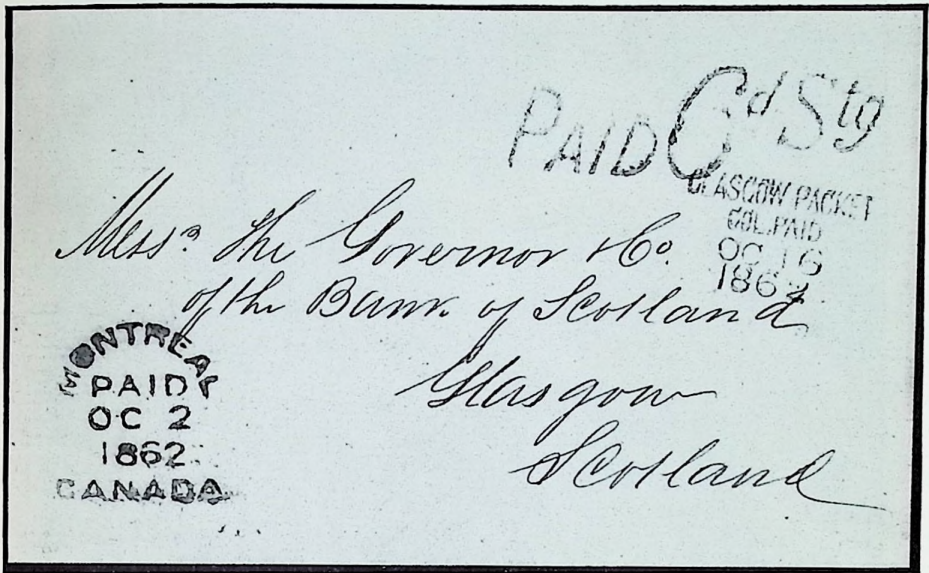 PAID 6d Stg
GLASGOW PACKET
COL. PAID
OC 16
1862
Messrs The Governor & Co.
of the Bank of Scotland
Glasgow
Scotland
MONTREAL
PAID
OC 2
1862
CANADA